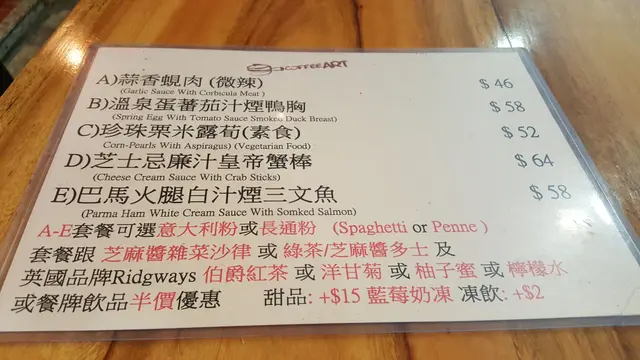 COFFEE ART
A)蒜香蜆肉 (微辣) $ 46
(Garlic Sauce With Corbicula Meat )
B)溫泉蛋蕃茄汁煙鴨胸 $ 58
(Spring Egg With Tomato Sauce Smoked Duck Breast)
C)珍珠栗米露荀(素食) $ 52
Corn-Pearls With Aspiragus) (Vegetarian Food)
D)芝士忌廉汁皇帝蟹棒 $ 64
(Cheese Cream Sauce With Crab Sticks)
E)巴馬火腿白汁煙三文魚 $ 58
(Parma Ham White Cream Sauce With Somked Salmon)
A-E套餐可選意大利粉或長通粉 (Spaghetti or Penne )
套餐跟 芝麻醬雜菜沙律 或 綠茶/芝麻醬多士 及
英國品牌Ridgways 伯爵紅茶 或 洋甘菊 或 柚子蜜 或 檸檬水
或餐牌飲品半價優惠 甜品: +$15 藍莓奶凍 凍飲: +$2